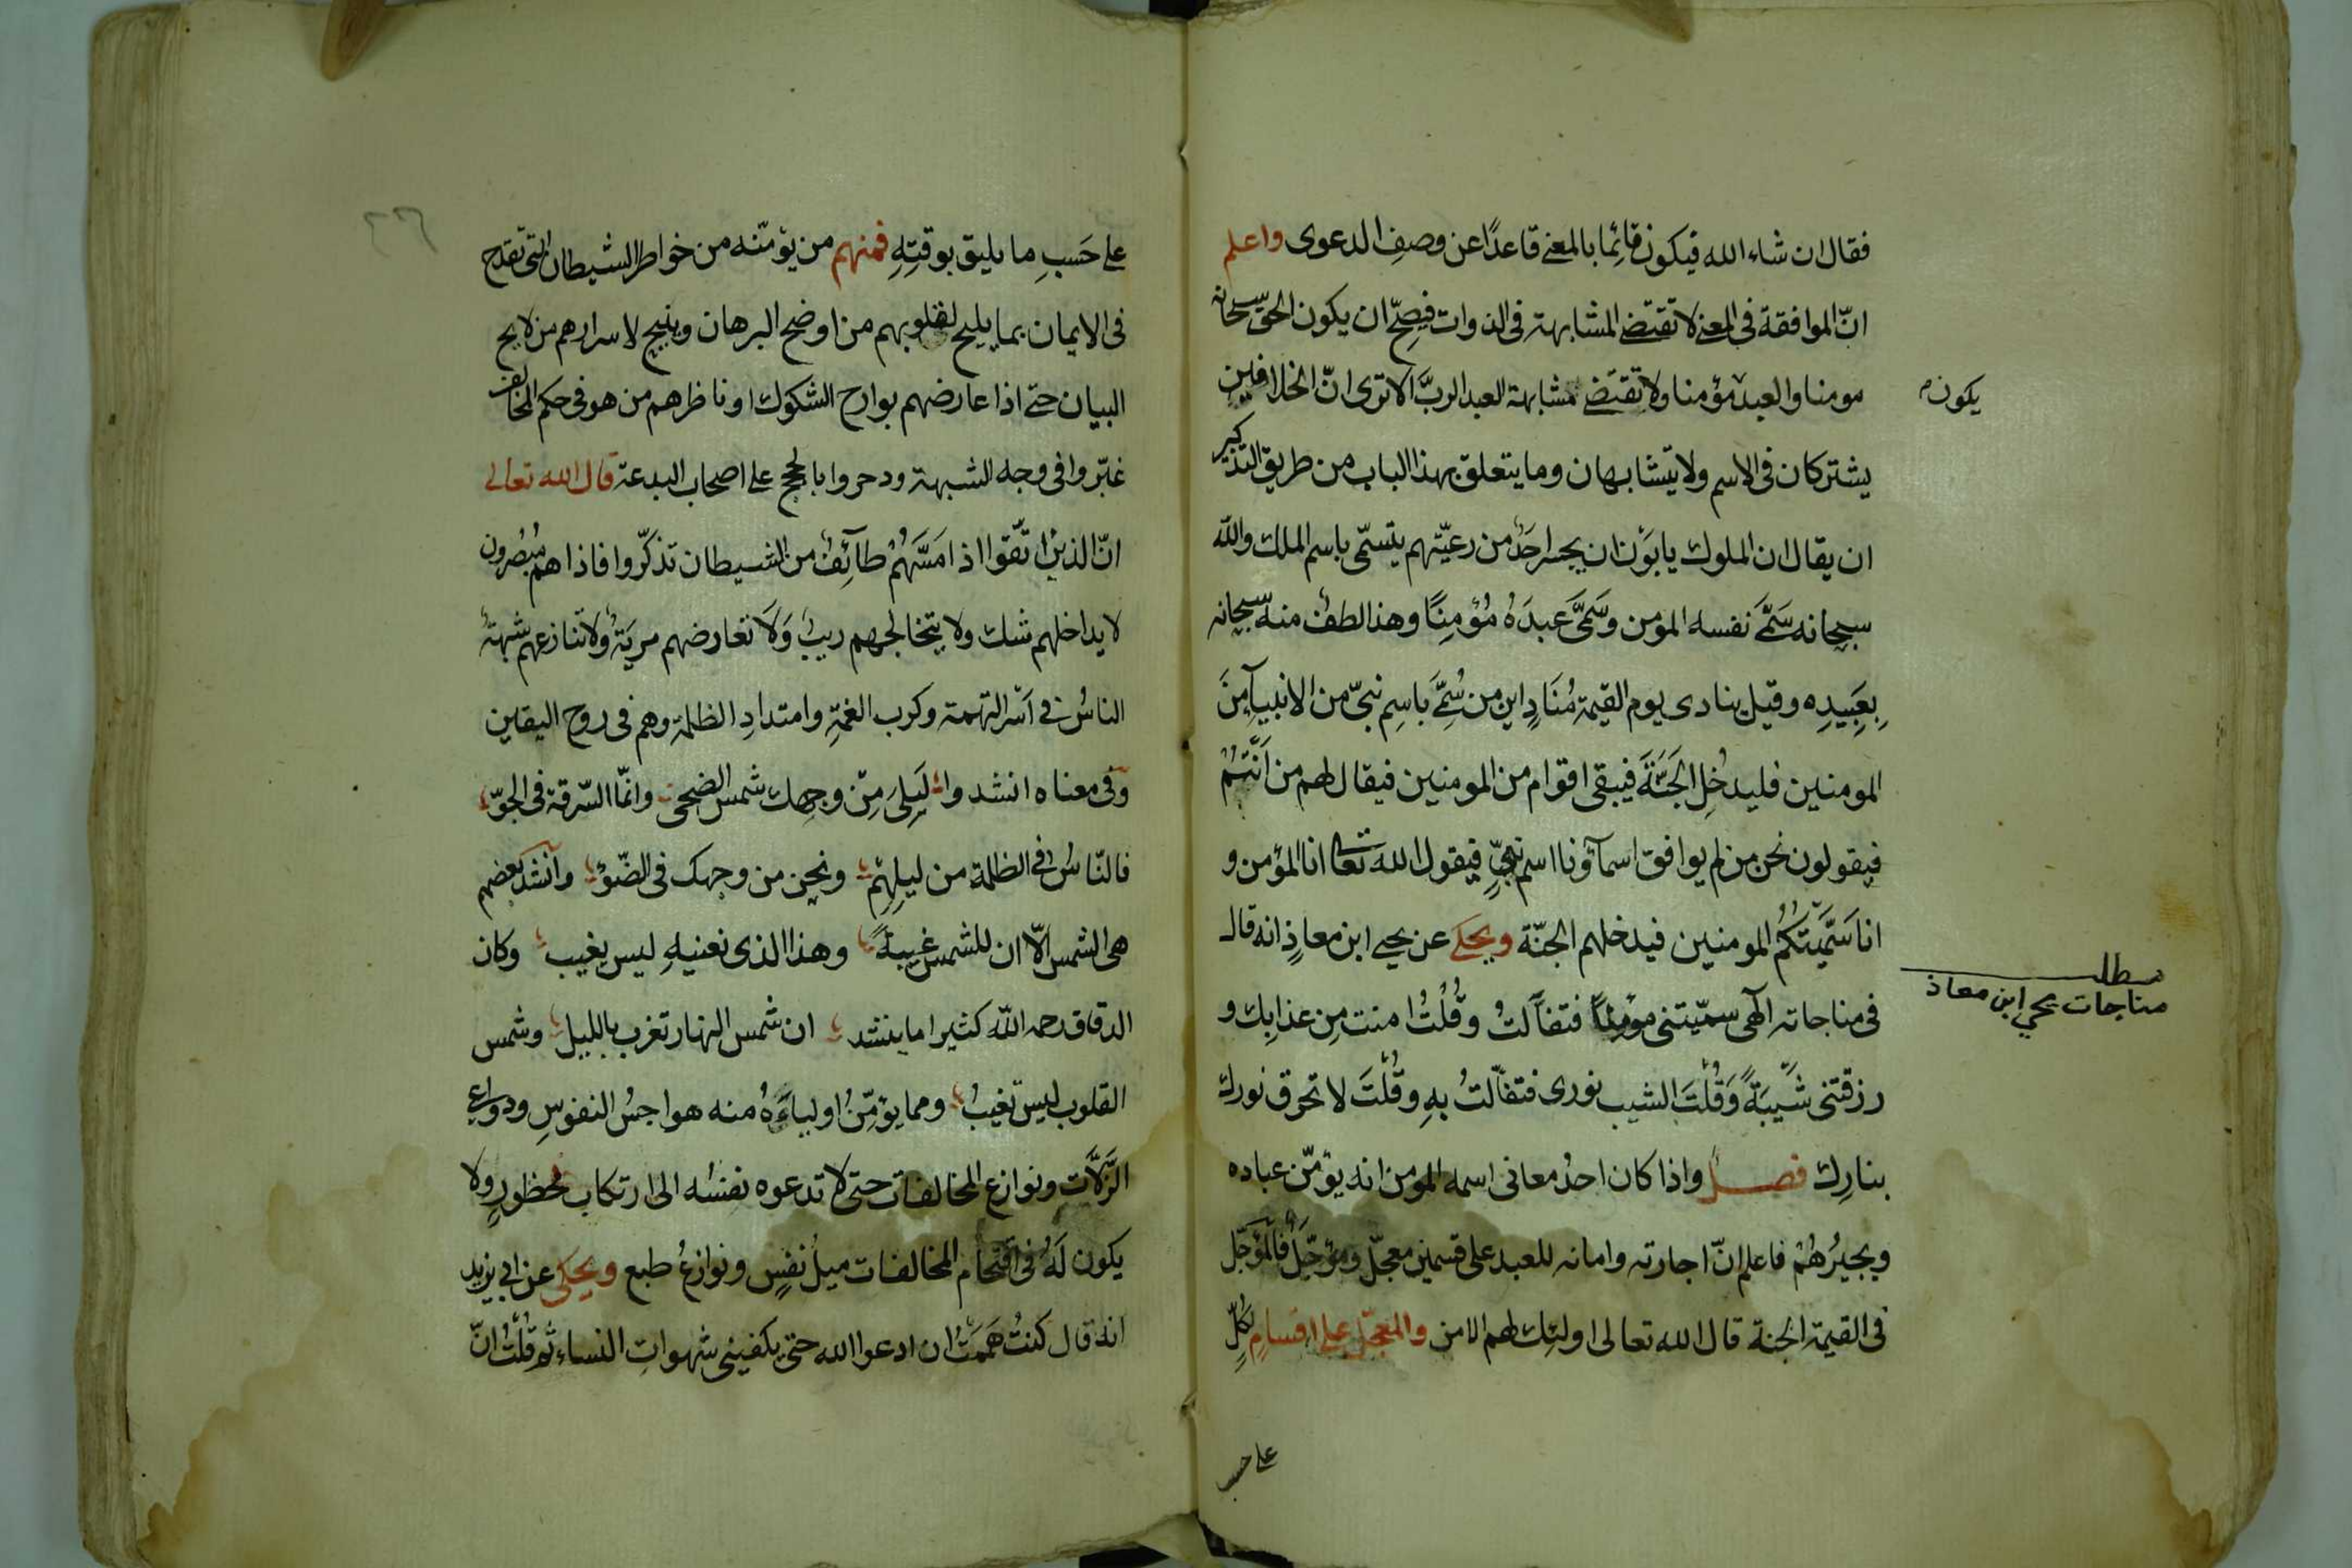 فقال ان شاء الله فيكون قائما بالمعنى قاعدًا عن وصف الدعوى واعلم
انّ الموافقة فى المعنى لا تقتضى المشابهة فى الذوات فصحّ ان يكون الحق سبحانه
مومنا والعبد مؤمنا ولا تقتضى مشابهة العبد الربَّ الا ترى انّ الخلافين
يكون
يشتركان فى الاسم ولا يتشابهان وما يتعلق بهذا الباب من طريق التذكير
ان يقال ان الملوك يابَوْن ان يجسر احدٌ من رعيّتهم يتسمّى باسم الملك والله
سبحانه سَمَّى نفسه المومن وسَمَّى عبدَهُ مُؤمِنًا وهذا لطفٌ منه سبحانه
بِعَبِيدِه وقيل ينادى يوم القيمة مُنَادٍ اين من سُمِّىَ باسِم نبىّ من الانبيآء مِنَ
المومنين فليدخُلِ الجَنَّةَ فيبقى اقوام من المومنين فيقال لهم من اَنْتُمْ
فيقولون نحن من لم يوافق اسمآؤنا اسم نبىٍّ فيقول الله تعالى انا المؤمن و
انا سَمَّيْتُكُمُ المومنين فيدخلهم الجنّة ويحكى عن يحيى ابن معاذٍ انه قال
مطلب
مناجات يحي ابن معاذ
فى مناجاته آلهى سمّيتنى مؤمنًا فتفآلتُ وقُلْتُ امنت مِن عذابِك و
رزقتنى شَيْبَةً وَقُلْتَ الشيب نورى فتفآلتُ بهِ وقُلْتَ لا تحرق نورك
بنارِك فصل واذا كان احدُ معانى اسمه المومن انه يؤمّن عباده
ويجيرُهُمْ فاعلم انّ اجارته وامانه للعبد على قسمين معجّل ومؤجّل فالمؤجّل
فى القيمة الجنة قال الله تعالى اولئك لهم الامن والمعجّل على اقسامٍ لكلٍّ
على حسب
٢٦
على حَسَبِ ما يليق بوقتِهِ فمنهم من يؤمّنه من خواطر الشيطان التى تقدح
فى الايمان بما يليح لقلوبهم من اوضح البرهان ويتيح لاسرارهم من لايح
البيان حتى اذا عارضهم بوارح الشكوك او ناظرهم من هو فى حكم المخالف
غبّروا فى وجه الشبهة ودحروا بالحجج على اصحاب البدعة قال الله تعالى
انّ الذين اتَّقوا اذا مَسَّهُمْ طآئِفٌ من الشيطان تذكّروا فاذا هم مُبْصِرُون
لا يداخلهم شك ولا يتخالجهم ريبٌ وَلَا تعارضهم مريَةٌ ولا تنازعهم شبهةٌ
الناسُ فى اَسْر التهمة وكرب الغمّةِ وامتدادِ الظلمة وهم فى روح اليقين
وفى معناه انشدوا ليلى مِنْ وجهِك شمس الضحى وانّما السّرقة فى الجوّ
فالنّاسُ فى الظلمة من ليلِهِمْ ونحن من وجهك فى الضّوْ وانشد بعضهم
هى الشمس الّا ان للشمس غيبةً وهذا الذى نعنيهِ ليس يغيب وكان
الدقاق رحمه الله كثيرا ما ينشد ان شمس النهار تغرب بالليل وشمس
القلوب ليس تغيبُ ومما يؤمّنُ اولياءَهُ منه هواجسُ النفوسِ ودواعى
الزَّلَّات ونوازع المخالفات حتى لا تدعوه نفسُه الى ارتكاب محظورٍ ولا
يكون لَهُ فى اقتحام المخالفات ميلُ نفسٍ ونوازعُ طبع ويحكى عن ابى يزيد
انه قال كنتُ هَمَمْتُ ان ادعوا الله حتى يكفينى شهواتِ النساء ثم قُلْتُ انّ